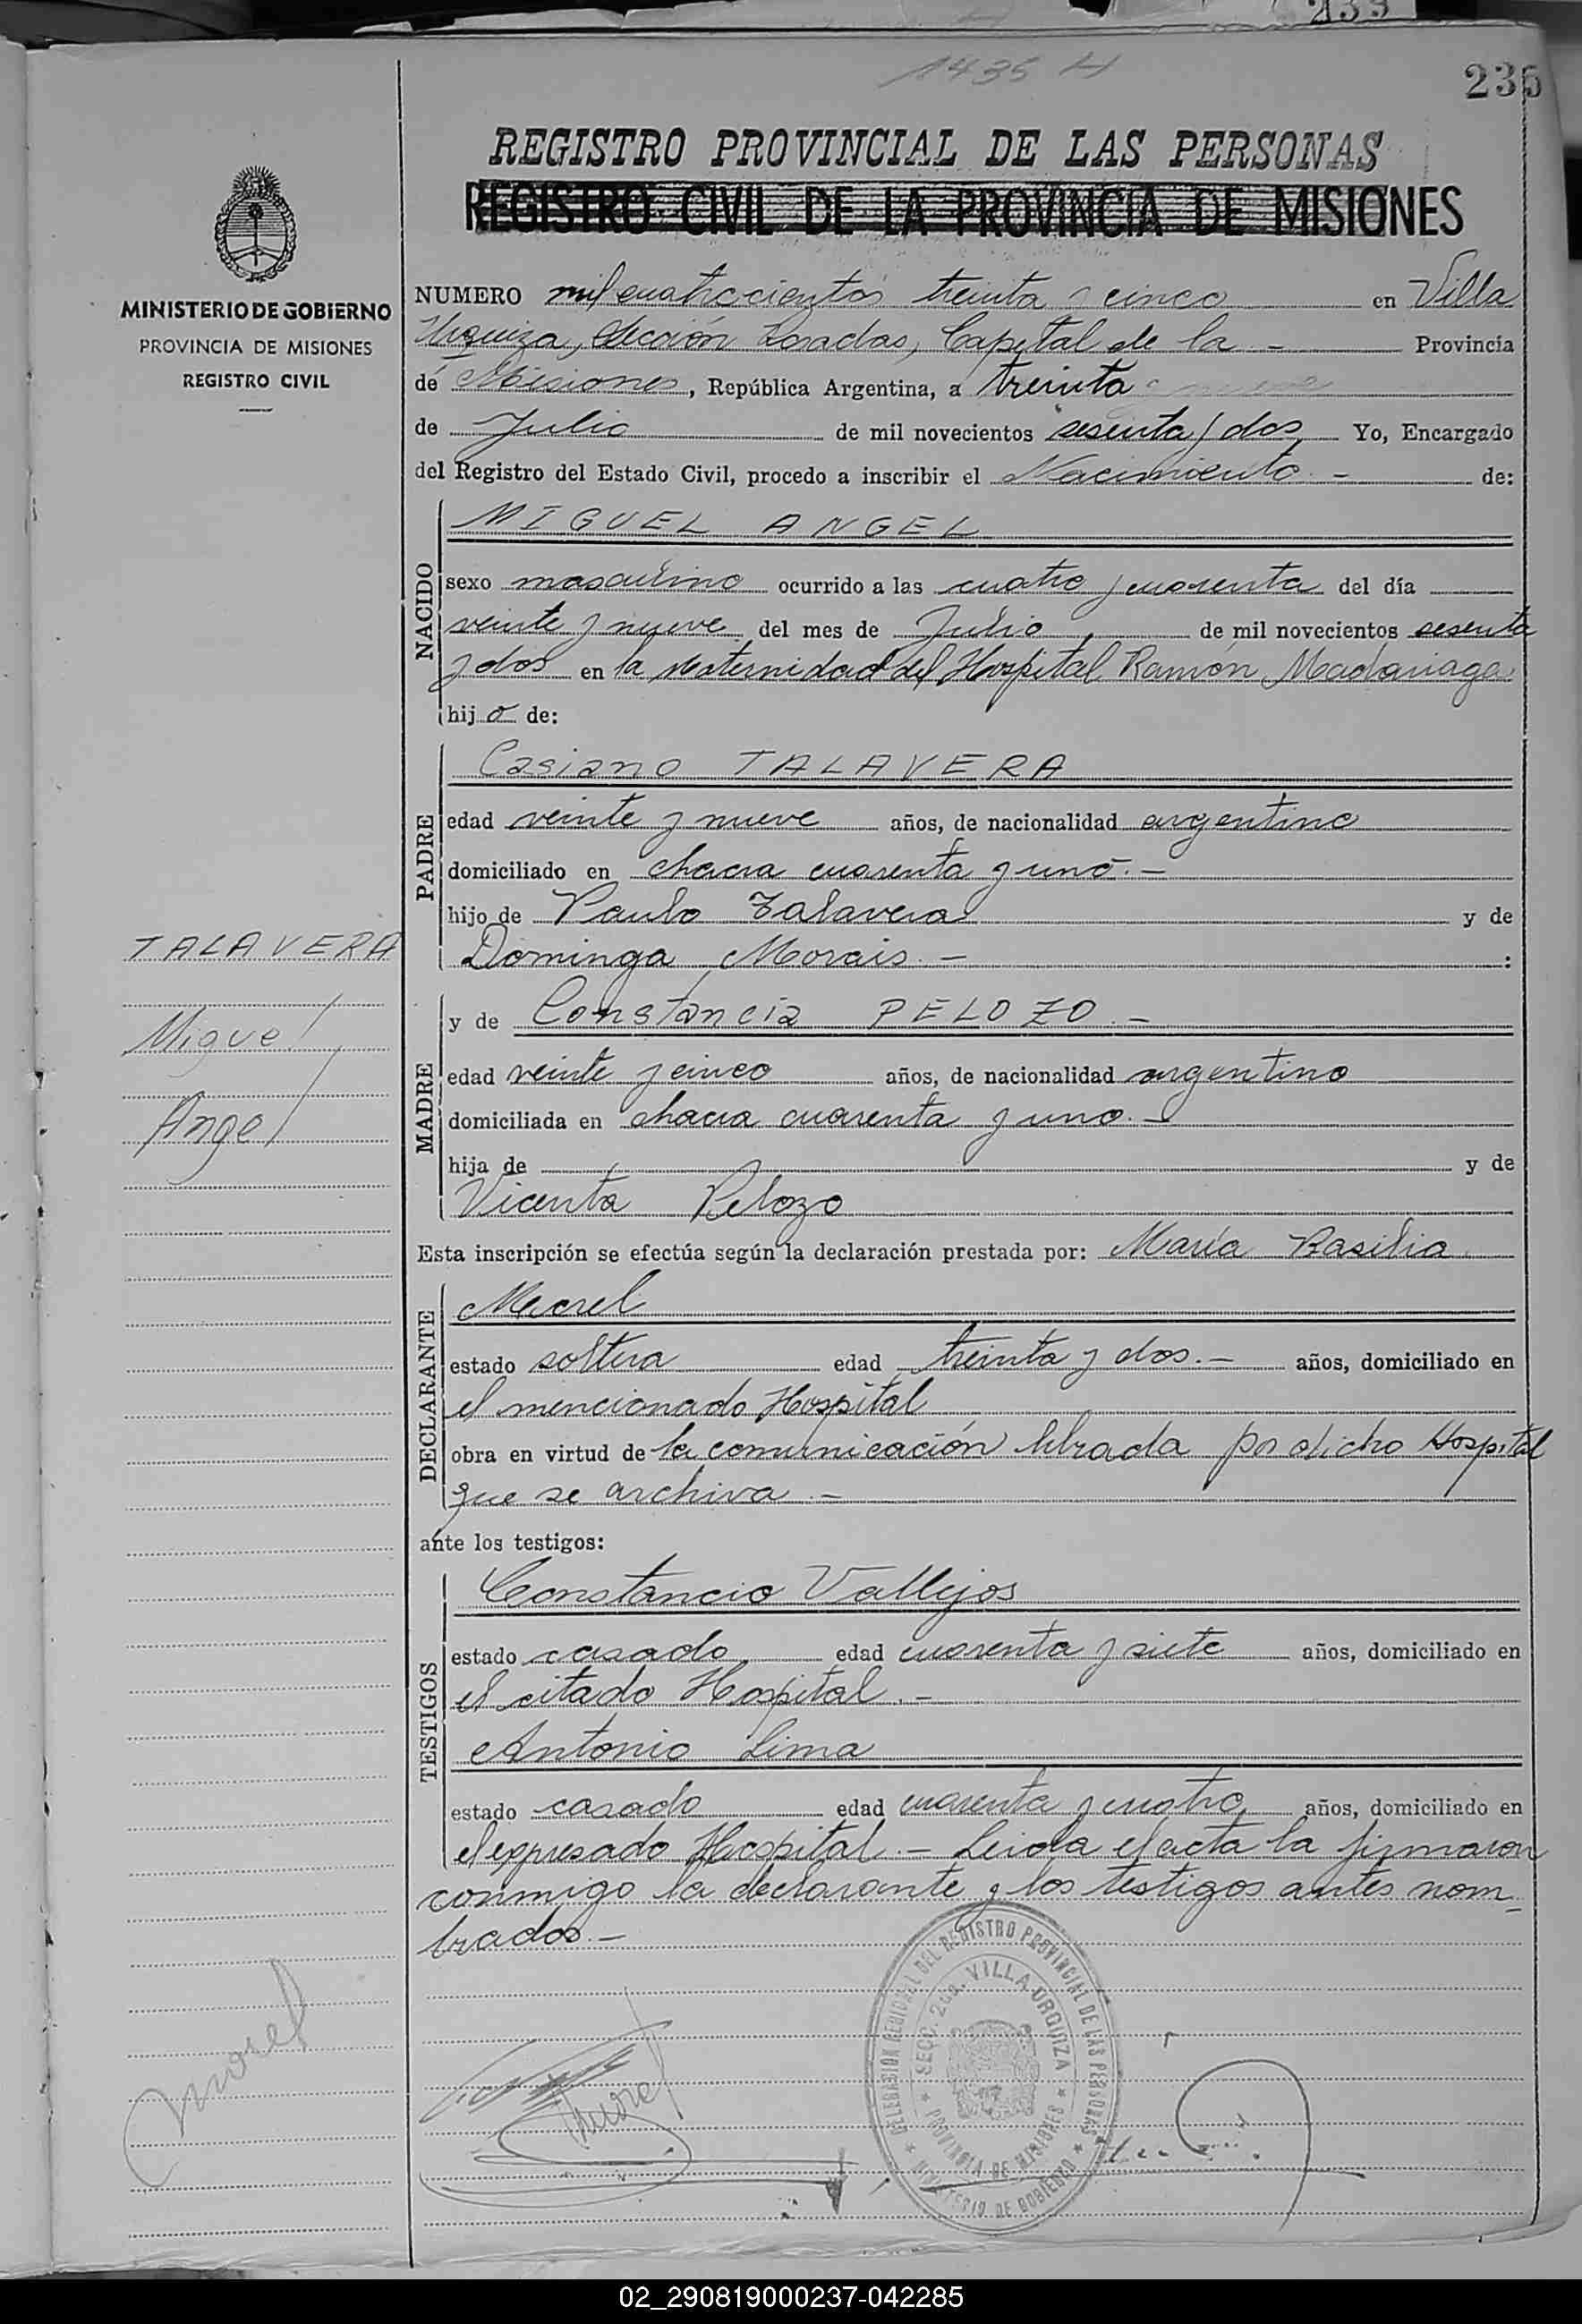 1435 H
235
REGISTRO PROVINCIAL DE LAS PERSONAS
REGISTRO CIVIL DE LA PROVINCIA DE MISIONES
MINISTERIO DE GOBIERNO
PROVINCIA DE MISIONES
REGISTRO CIVIL
NUMERO mil cuatrocientos treinta y cinco en Villa
Urquiza, Sección Posadas, Capital de la - Provincia
de Misiones, República Argentina, a treinta
de Julio de mil novecientos sesenta y dos Yo, Encargado
del Registro del Estado Civil, procedo a inscribir el Nacimiento.- de:
NACIDO
MIGUEL ANGEL
sexo masculino ocurrido a las cuatro y cuarenta del día
veinte y nueve del mes de Julio de mil novecientos sesenta
y dos en la Maternidad del Hospital Ramón Madariaga
hijo de:
PADRE
Casiano TALAVERA
edad veinte y nueve años, de nacionalidad argentino
domiciliado en chacra cuarenta y uno.-
hijo de Paulo Talavera y de
Dominga Morais.- :
TALAVERA
Miguel
Angel
MADRE
y de Constancia PELOZO.-
edad veinte y cinco años, de nacionalidad argentino
domiciliada en chacra cuarenta y uno.-
hija de y de
Vicenta Pelozo
Esta inscripción se efectúa según la declaración prestada por: María Basilia
DECLARANTE
Morel
estado soltera edad treinta y dos.- años, domiciliado en
el mencionado Hospital
obra en virtud de la comunicación librada por dicho Hospital
que se archiva.-
ante los testigos:
TESTIGOS
Constancio Vallejos
estado casado edad cuarenta y siete años, domiciliado en
el citado Hospital.-
Antonio Lima
estado casado edad cuarenta y cuatro años, domiciliado en
el expresado Hospital.- Leida el acta la firmaron
conmigo la declarante y los testigos antes nom-
brados.-
Morel
Morel
DELEGACION REGIONAL DEL REGISTRO PROVINCIAL DE LAS PERSONAS
SECC. 2da. VILLA URQUIZA
PROVINCIA DE MISIONES
MINISTERIO DE GOBIERNO
02_290819000237-042285